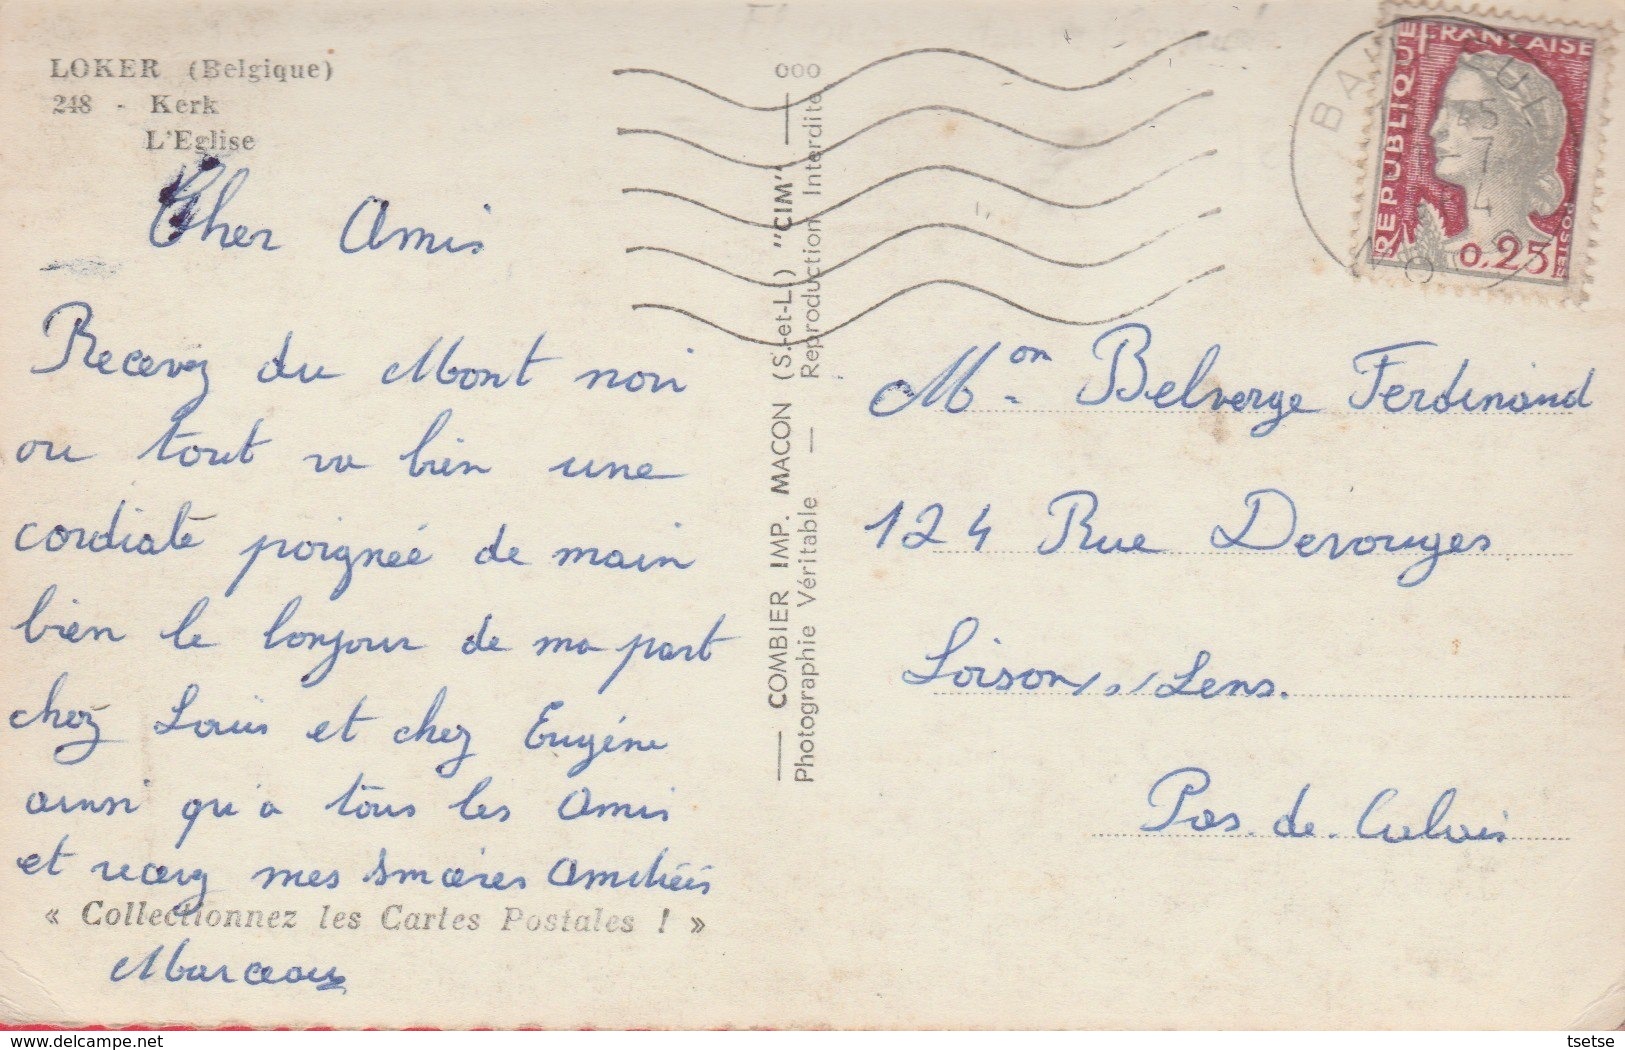 LOKER (Belgique)
248 - Kerk
L'Eglise
Cher Amis
Recevez du Mont noir
ou tout va bien une
cordiale poignée de main
bien le bonjour de ma part
chez Louis et chez Eugéne
ainsi qu'a tous les Amis
et recevez mes sincères Amitiéés
« Collectionnez les Cartes Postales ! »
Marceau
000
COMBIER IMP. MACON (S.-et-L.) "CIM"
Photographie Véritable — Reproduction Interdite
REPUBLIQUE FRANÇAISE
POSTES
0,25
45
7
4
Mon Belverge Ferdinand
124 Rue Devouges
Loison / s / Lens.
Pas. de. Calais
delcampe.net
tsetse